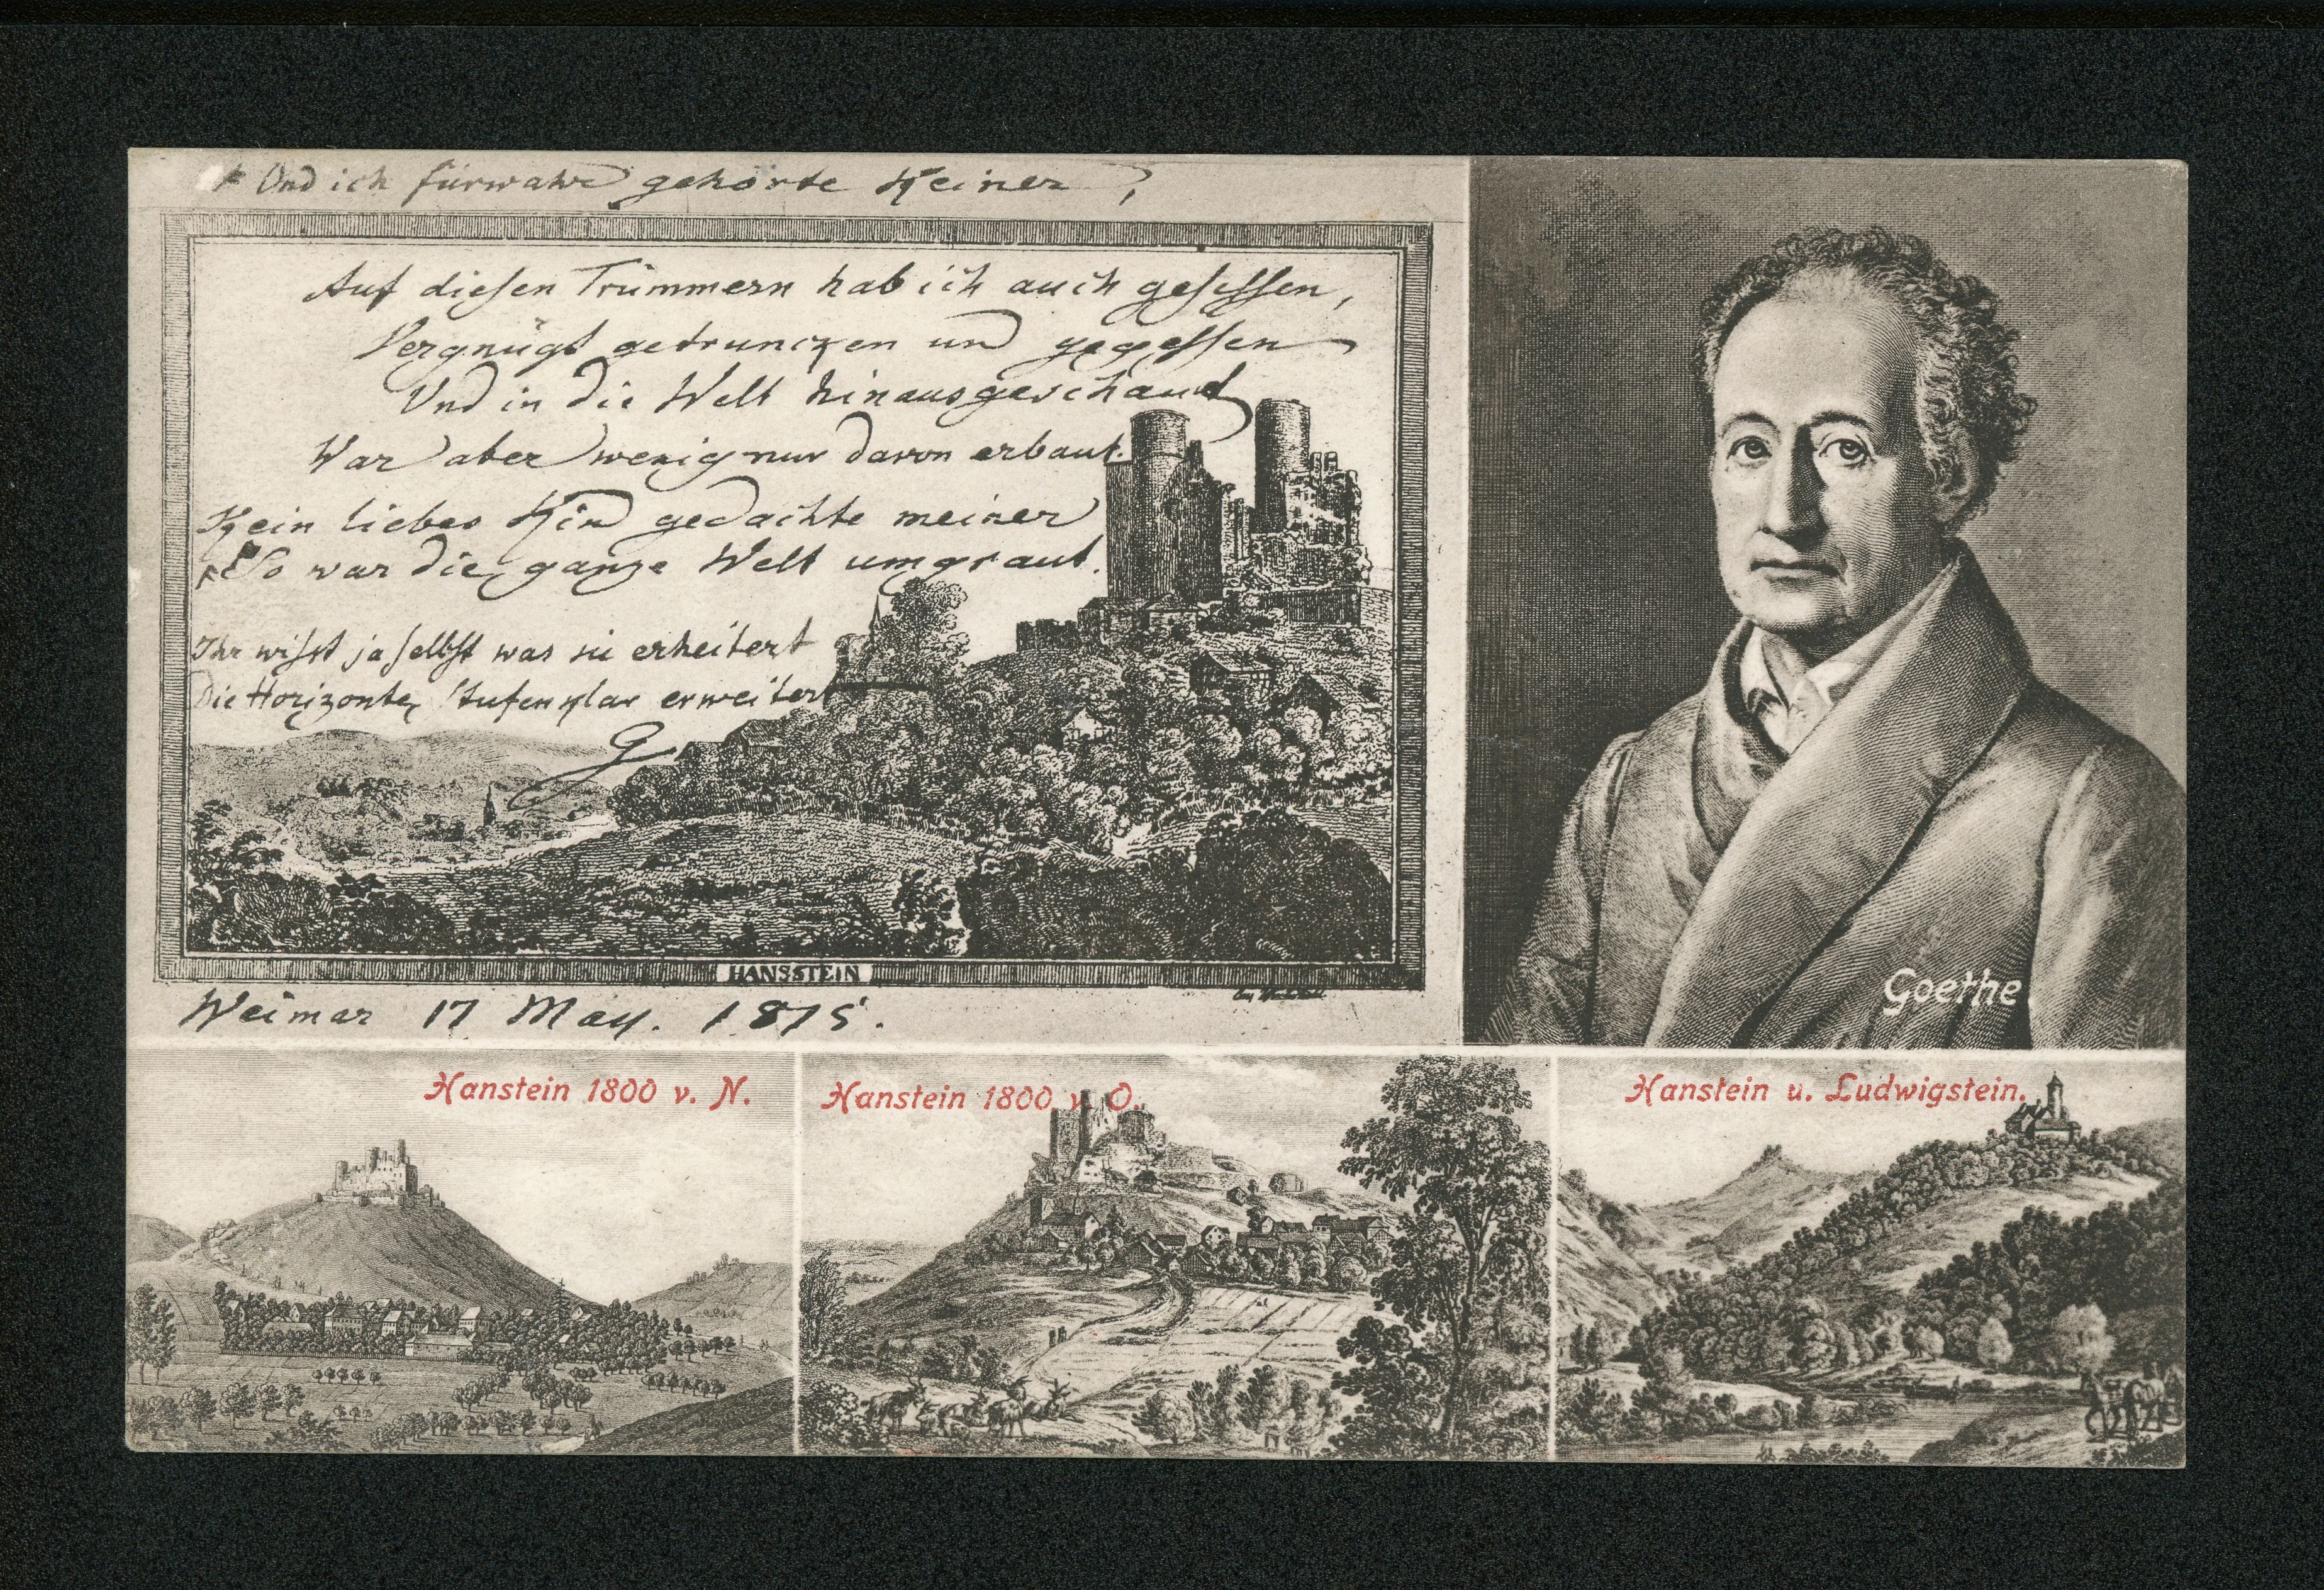 Und ich fürwahr gehörte Keiner,
Auf diesen Trümmern hab ich auch gesessen,
Vergnügt getruncken und gegessen
Und in die Welt hinausgeschaut
War aber wenig nur davon erbaut.
Kein liebes Kind gedachte meiner
So war die ganze Welt umgraut.
Ihr wisst ja selbst was sie erheitert
Die Horizonte, stufenklar erweitert
G
HANSSTEIN
Weimar 17 May. 1815.
Goethe.
Hanstein 1800 v. N.
Hanstein 1800 v. O.
Hanstein u. Ludwigstein.